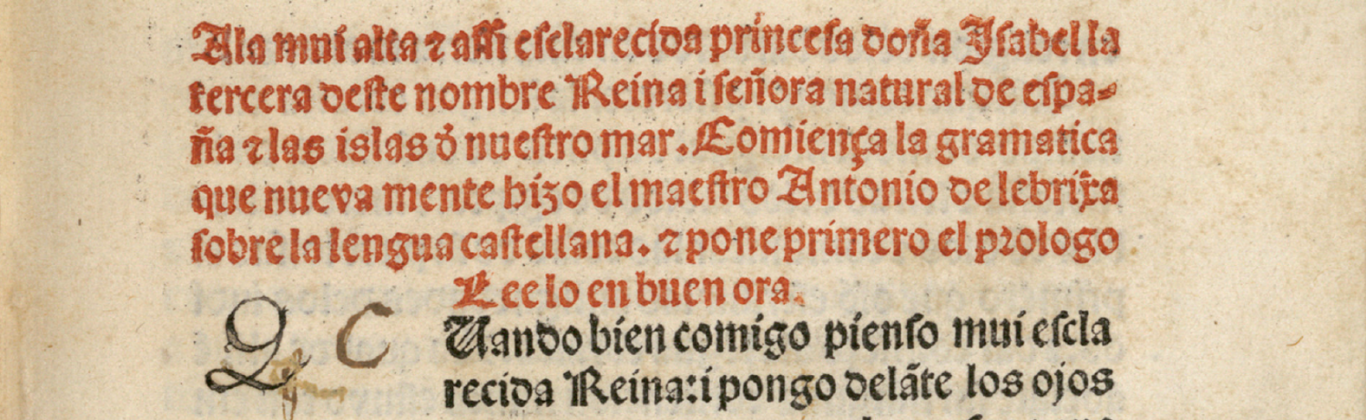 Ala mui alta ⁊ aſſi eſclarecida princeſa doña Iſabel la
tercera deſte nombre Reina i ſeñora natural de eſpa-
ña ⁊ las islas đ nueſtro mar. Comiença la gramatica
que nueva mente hizo el maeſtro Antonio de lebrixa
ſobre la lengua caſtellana. ⁊ pone primero el prologo
Lee lo en buen ora.
Q C Uando bien comigo pienſo mui eſcla
recida Reina: i pongo delãte los ojos